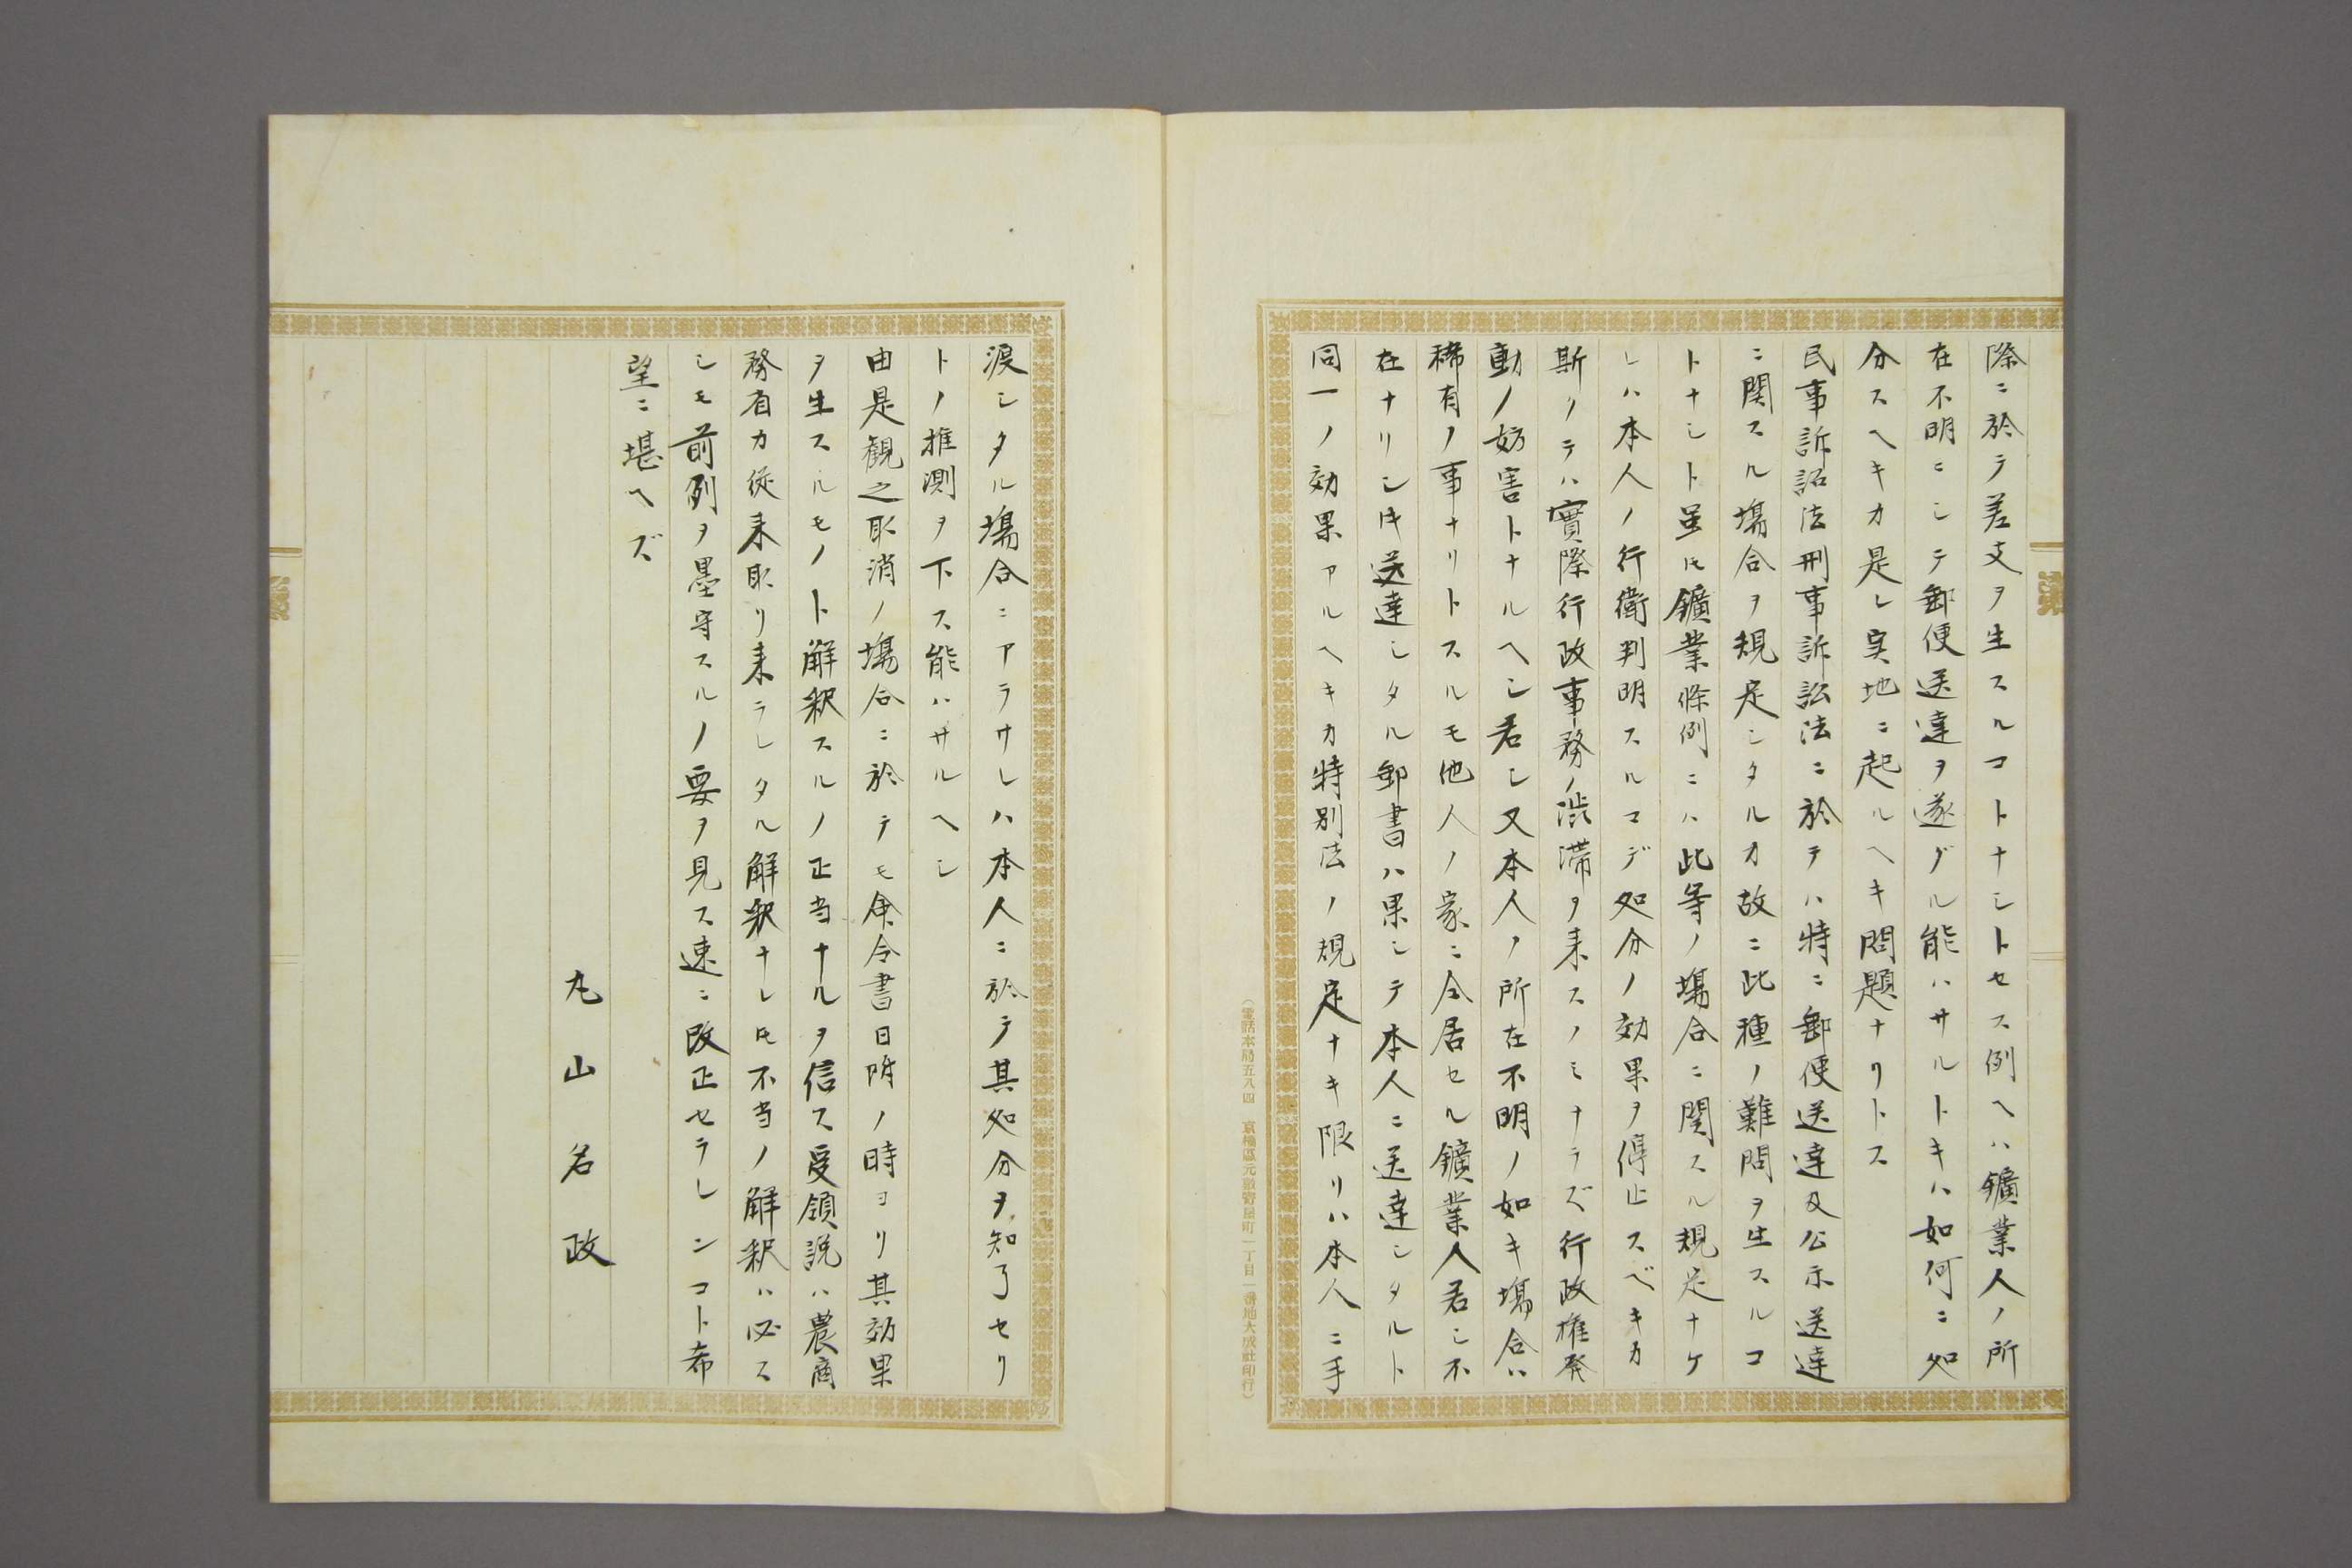 際ニ於テ差支ヲ生スルコトナシトセス例ヘハ鑛業人ノ所
在不明ニシテ郵便送達ヲ遂グル能ハサルトキハ如何ニ処
分スヘキカ是レ実地ニ起ルヘキ問題ナリトス
民事訴訟法刑事訴訟法ニ於テハ特ニ郵便送達及公示送達
ニ関スル塲合ヲ規定シタルカ故ニ此種ノ難問ヲ生スルコ
トナシト虽𪜈鑛業條例ニハ此等ノ塲合ニ関スル規定ナケ
レハ本人ノ行衛判明スルマデ処分ノ効果ヲ停止スベキカ
斯リテハ實際行政事務ノ渋滞ヲ来スノミナラズ行政権発
動ノ妨害トナルヘシ若シ又本人ノ所在不明ノ如キ塲合ハ
稀有ノ事ナリトスルモ他人ノ家ニ仝居セル鑛業人若シ不
在ナリシ𪜈送達シタル郵書ハ果シテ本人ニ送達シタルト
同一ノ効果アルヘキカ特別法ノ規定ナキ限リハ本人ニ手
渡シタル塲合ニアラサレハ本人ニ於テ其処分ヲ知了セリ
トノ推測ヲ下ス能ハサルヘシ
由是観之取消ノ塲合ニ於テモ仝令書日附ノ時ヨリ其効果
ヲ生スルモノト解釈スルノ正当ナルヲ信ス受領説ハ農商
務省カ従来取リ来ラレタル解釈ナレ𪜈不当ノ解釈ハ必ス
シモ前例ヲ墨守スルノ要ヲ見ス速ニ改正セラレンコト希
望ニ堪ヘズ
丸山名政
(電話本局五八四 京橋區元數寄屋町一丁目一番地大成社印行)